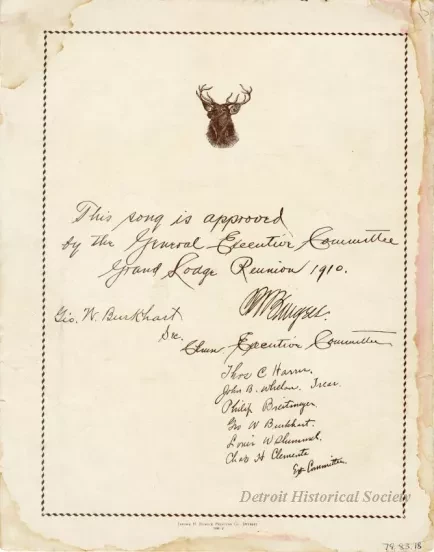 This song is approved
by the General Executive Committee
Grand Lodge Reunion 1910.
Geo. W. Burkhart
Sec.
Executive Committee
Thos C
John B. Whelan. Treas.
Philip Breitmeyer.
Geo W Burkhart.
Louis W
Chas H Clements
Ex Committee
Detroit Historical Society
79.83.18